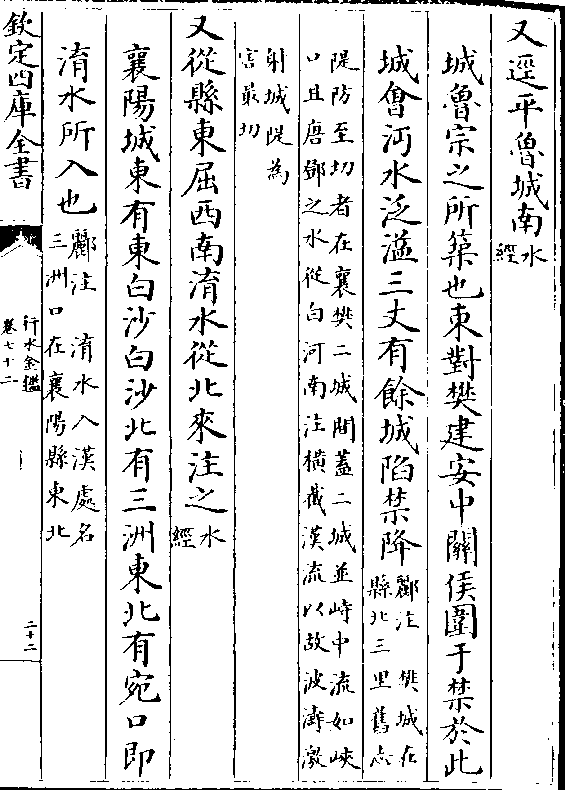 又逕平魯城南水經
城魯宗之所築也東對樊建安中關侯圍于禁於此
城會沔水泛溢三丈有餘城陷禁降酈注　樊城在縣北三里舊志
隄防至切者在襄樊二城間蓋二城並峙中流如峽
口且唐鄧之水從白河南注橫截漢流以故波濤激
射城隄為
害最切
又從縣東屈西南淯水從北來注之水經
襄陽城東有東白沙白沙北有三洲東北有宛口即
淯水所入也酈注　淯水入漢處名三洲口在襄陽縣東北
欽定四庫全書
行水金鑑
卷七十二
二十二